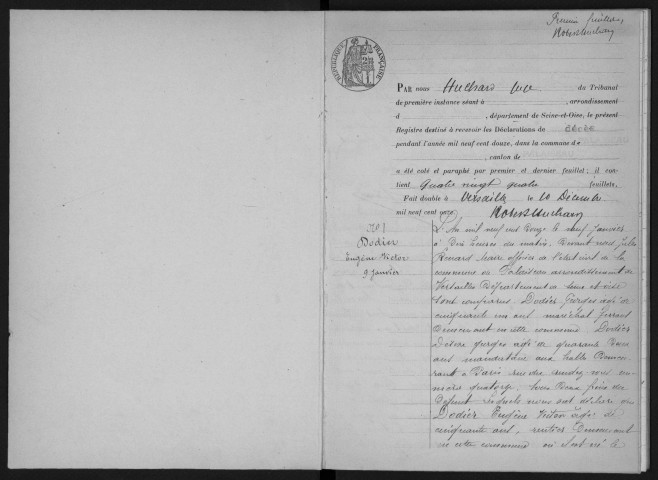 Premier feuillet
RÉPUBLIQUE FRANÇAISE
PAR nous Huchard Juge du Tribunal
de première instance séant à , arrondissement
d , département de Seine-et-Oise, le présent
Registre destiné à recevoir les Déclarations de DÉCÈS
pendant l'année mil neuf cent douze, dans la commune de
, canton de
a été coté et paraphé par premier et dernier feuillet; il con-
tient Quatre vingt quatre feuillets.
Fait double à Versailles le 10 Décembre
mil neuf cent onze
No 1
Dodier
Eugène Victor
9 janvier
L'An mil neuf cent Douze le neuf janvier
à Dix heures du matin, Devant nous Jules
Renard Maire officier de l'état civil de la
commune de Palaiseau arrondissement de
Versailles Département de Seine et Oise
sont comparus Dodier Georges agé de
cinquante un ans maréchal ferrant
Demeurant en cette commune Dodier
Désiré Georges agé de quarante Deux
ans mandataire aux halles Demeu-
rant à Paris rue du rendez vous nu-
méro quatorze, tous Deux frères du
Défunt lesquels nous ont déclaré que
Dodier Eugène Victor agé de
cinquante ans, rentier Demeurant
en cette commune où il est né le